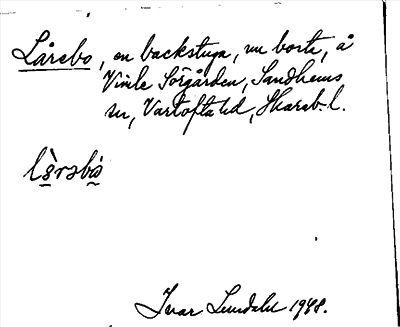 Låsebo, en backstuga, nu borta, å
Vinle Sörgården, Sandhems
sn, Vartofta hd, Skarab. l.
Ivar Lundahl 1948.